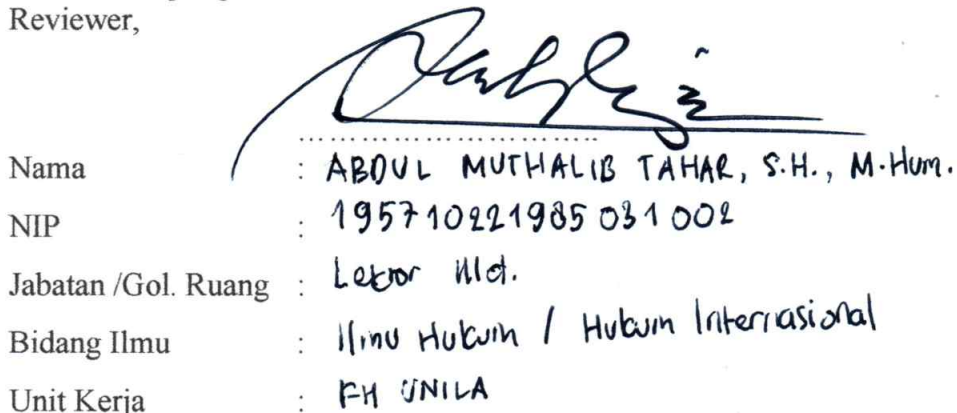 Reviewer,
Nama : ABDUL MUTHALIB TAHAR, S.H., M.Hum.
NIP : 195710221985 031 002
Jabatan /Gol. Ruang : Lektor IIId.
Bidang Ilmu : Ilmu Hukum / Hukum Internasional
Unit Kerja : FH UNILA